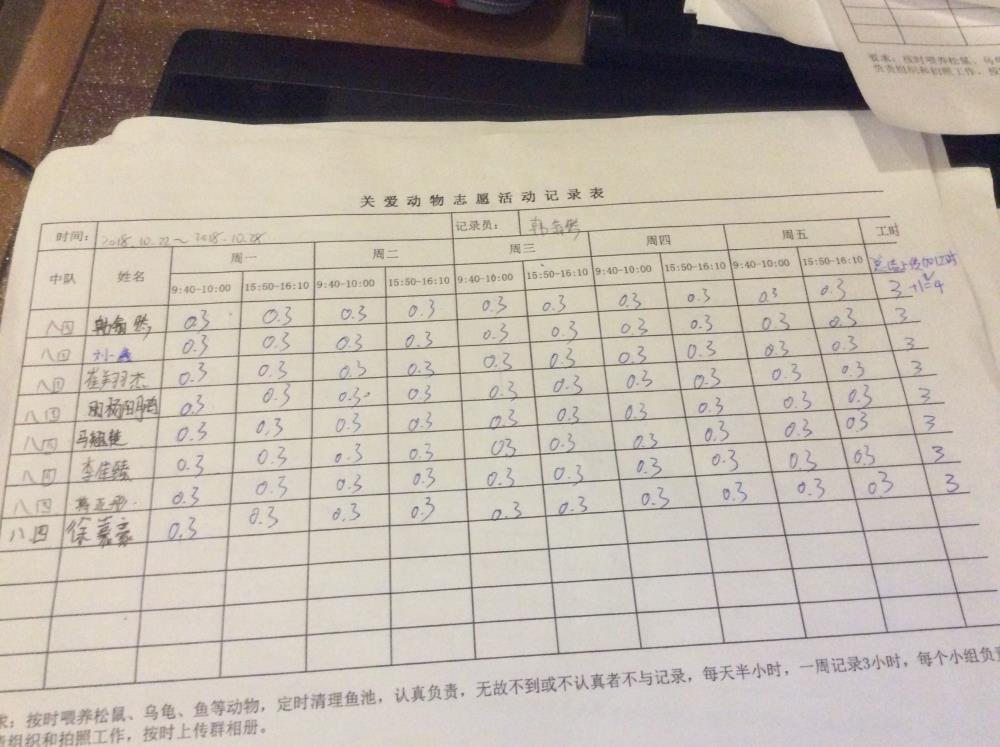 要求：按时喂养松鼠、乌龟
负责组织和拍照工作，按
关爱动物志愿活动记录表
时间： 2018.10.22～2018.10.28 记录员：
中队 姓名 周一 周二 周三 周四 周五 工时
9:40-10:00 15:50-16:10 9:40-10:00 15:50-16:10 9:40-10:00 15:50-16:10 9:40-10:00 15:50-16:10 9:40-10:00 15:50-16:10
八四 0.3 0.3 0.3 0.3 0.3 0.3 0.3 0.3 0.3 0.3 3 +1=4
八四 0.3 0.3 0.3 0.3 0.3 0.3 0.3 0.3 0.3 0.3 3
八四 崔翔杰 0.3 0.3 0.3 0.3 0.3 0.3 0.3 0.3 0.3 0.3 3
八四 0.3 0.3 0.3 0.3 0.3 0.3 0.3 0.3 0.3 0.3 3
八四 0.3 0.3 0.3 0.3 0.3 0.3 0.3 0.3 0.3 0.3 3
八四 李佳臻 0.3 0.3 0.3 0.3 03 0.3 0.3 0.3 0.3 0.3 3
八四 0.3 0.3 0.3 0.3 0.3 0.3 0.3 0.3 0.3 0.3 3
八四 徐嘉豪 0.3 0.3 0.3 0.3 0.3 0.3 0.3 0.3 0.3 0.3 3
求：按时喂养松鼠、乌龟、鱼等动物，定时清理鱼池，认真负责，无故不到或不认真者不与记录，每天半小时，一周记录3小时，每个小组负责
责组织和拍照工作，按时上传群相册。